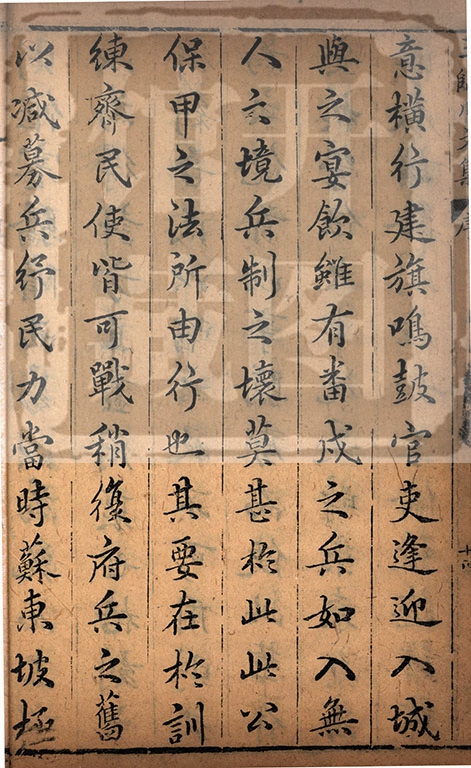 意横行建旗鳴鼓官吏逢迎入城
與之宴飲雖有畨戍之兵如入無
人之境兵制之壞莫甚於此此公
保甲之法所由行也其要在於訓
練齊民使皆可戰稍復府兵之舊
以减募兵紓民力當時蘇東坡極